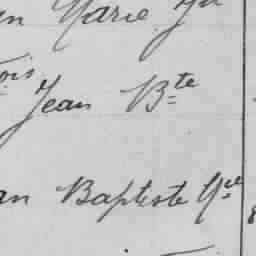 Marie
ois
Jean Bte
an Baptiste